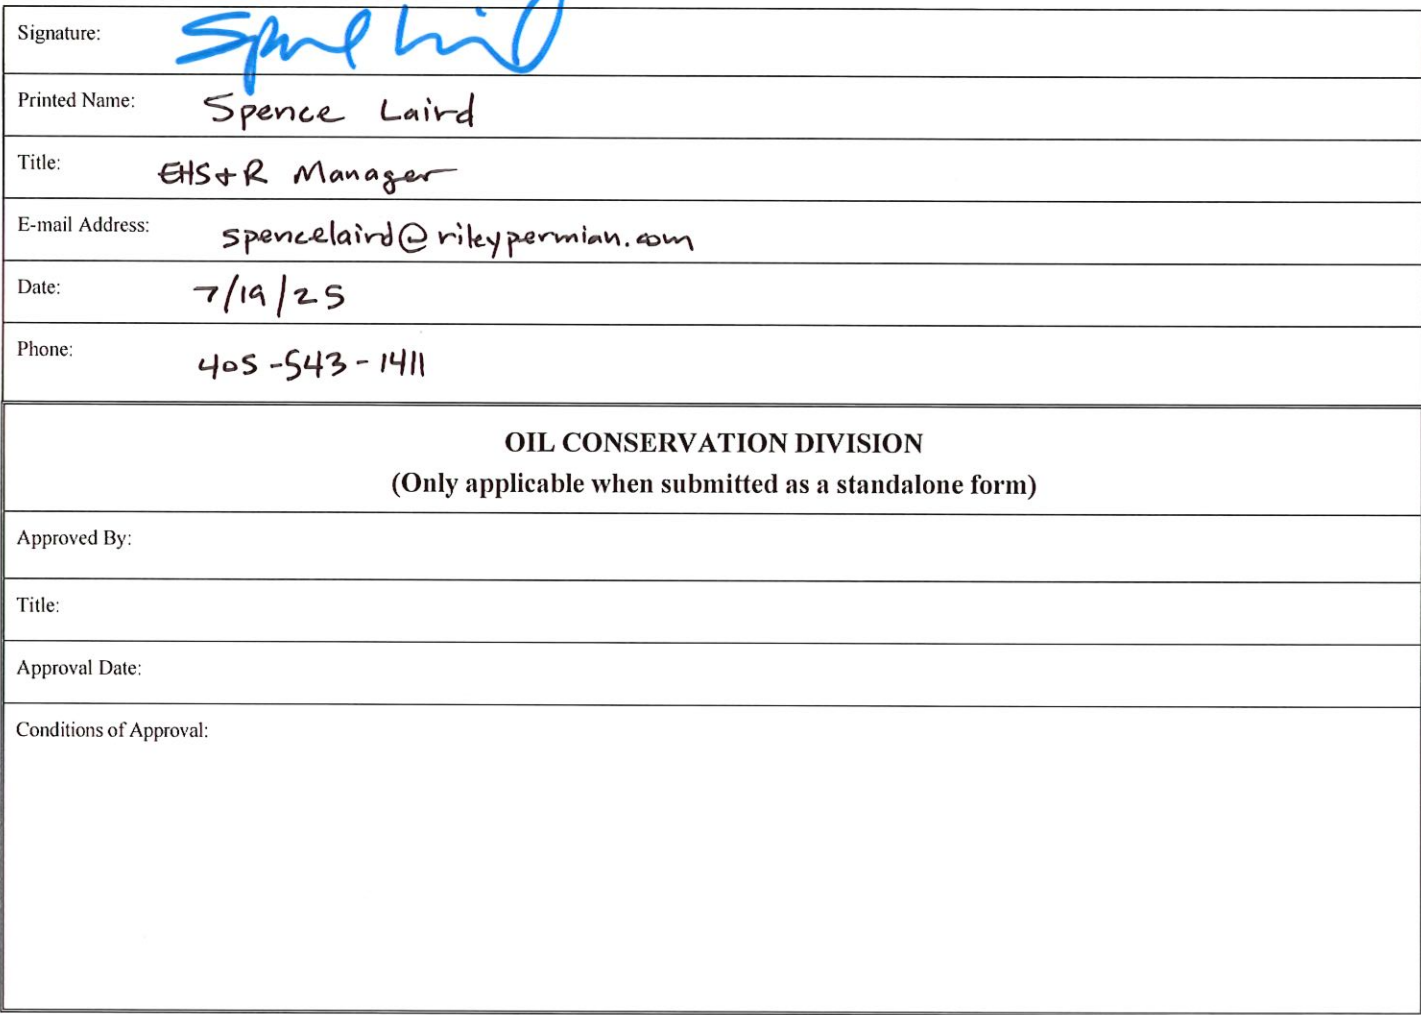 Signature: Spence Laird
Printed Name: Spence Laird
Title: EHS+R Manager
E-mail Address: spencelaird@rileypermian.com
Date: 7/19/25
Phone: 405-543-1411
OIL CONSERVATION DIVISION
(Only applicable when submitted as a standalone form)
Approved By:
Title:
Approval Date:
Conditions of Approval: